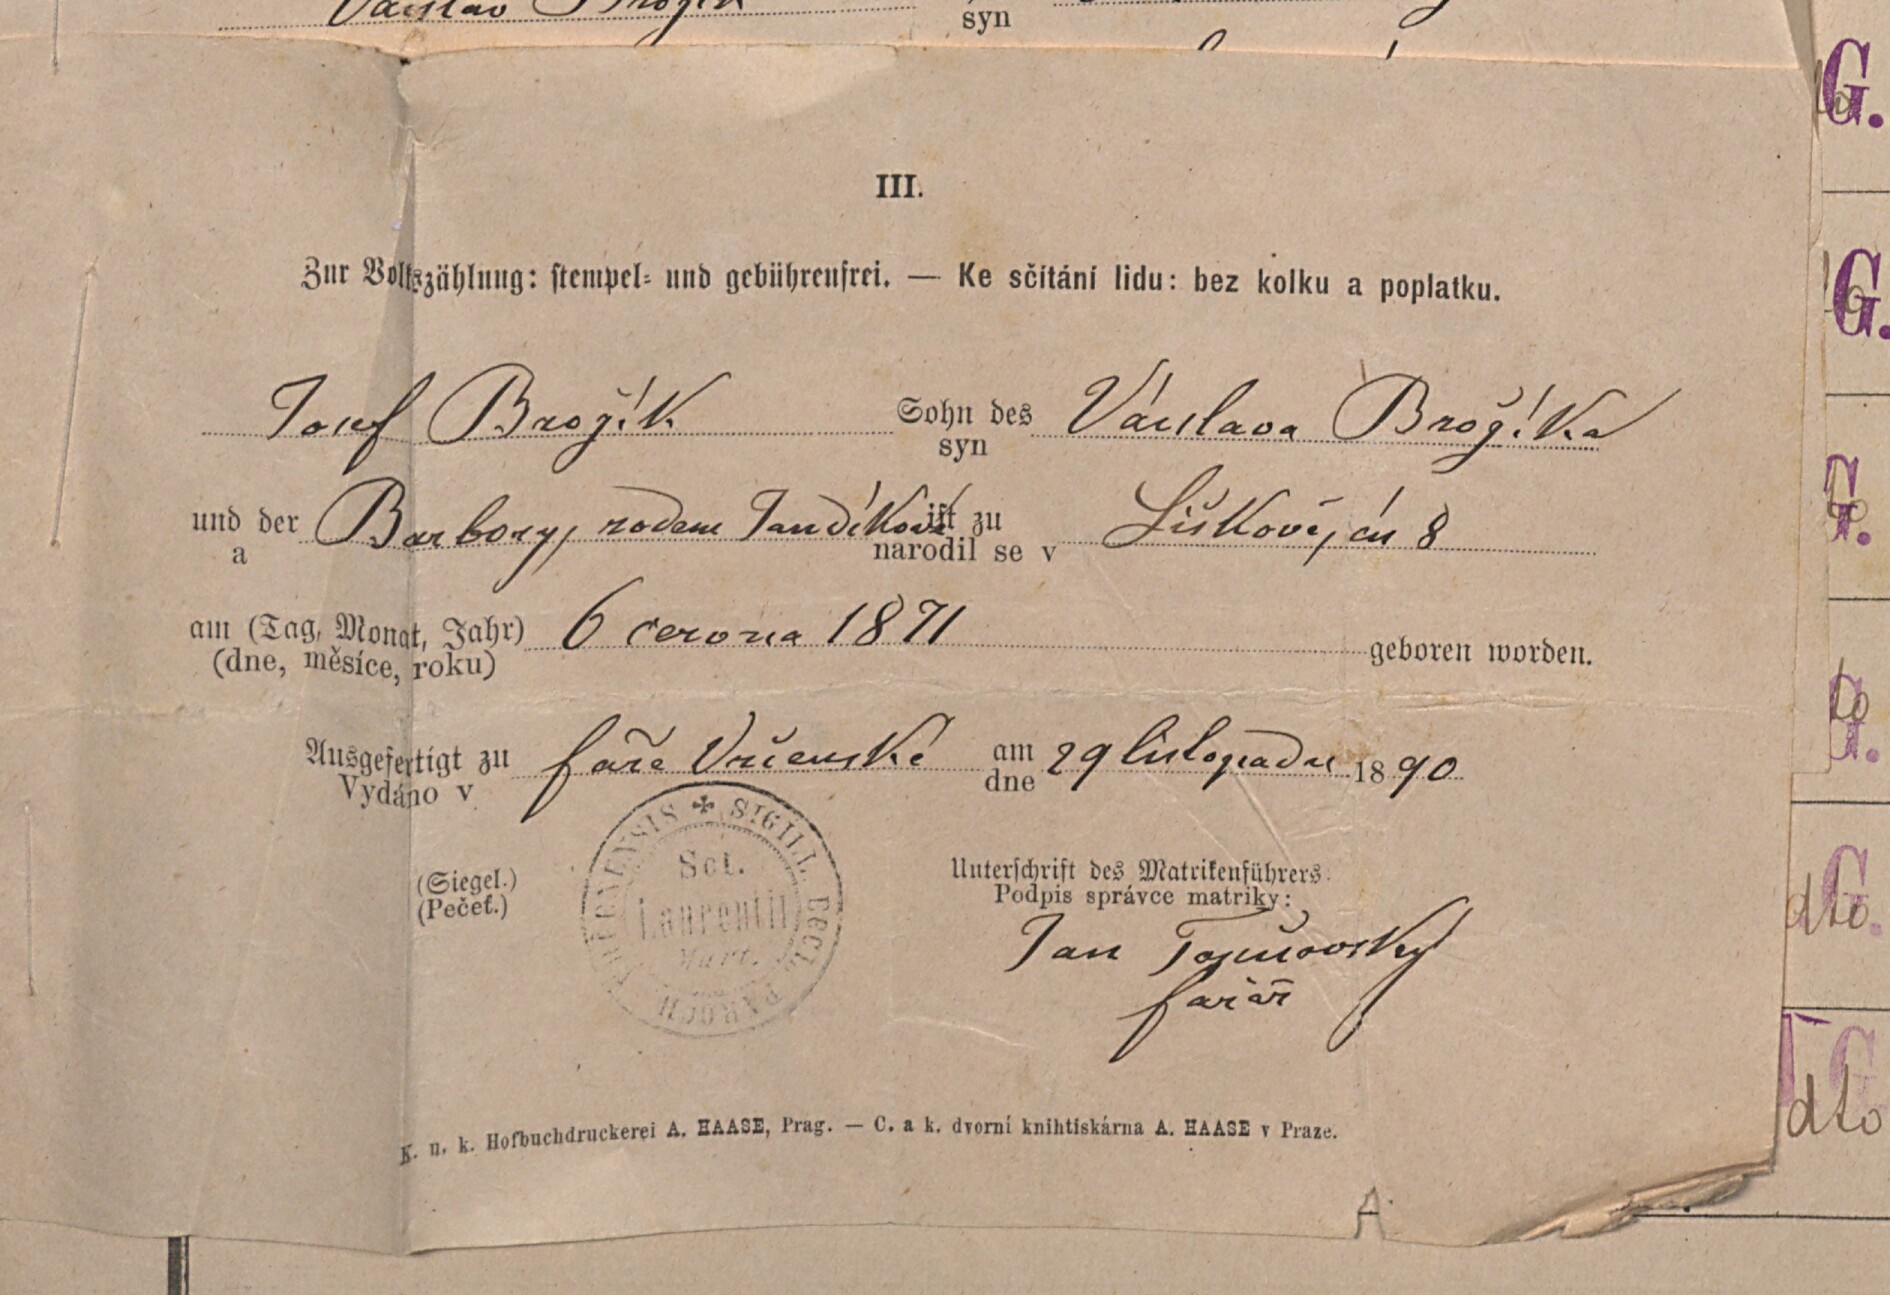 Václav Brožík syn
III.
Zur Volkszählung: stempel- und gebührenfrei. — Ke sčítání lidu: bez kolku a poplatku.
Josef Brožík Sohn des Václava Brožíka
syn
und der Barbory, rodem Jandíkové ist zu Liškově, čís 8
a narodil se v
am (Tag, Monat, Jahr) 6 června 1871 geboren worden.
(dne, měsíce, roku)
Ausgefertigt zu faře Vrčenské am 29 listopadu 1890
Vydáno v dne
SIGILL ECCL PAROCH
Sct.
Laurentii
Mart.
(Siegel.) Unterschrift des Matrikenführers:
(Pečeť.) Podpis správce matriky:
Jan
farář
K. u. k. Hofbuchdruckerei A. HAASE, Prag. — C. a k. dvorní knihtiskárna A. HAASE v Praze.
A
G.
G.
G.
G.
dto G.
G
dto